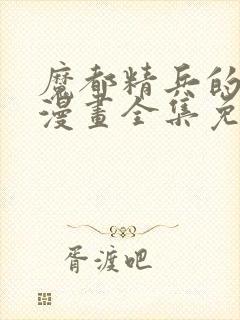 魔都精兵的
漫畫全集免
胥渡吧